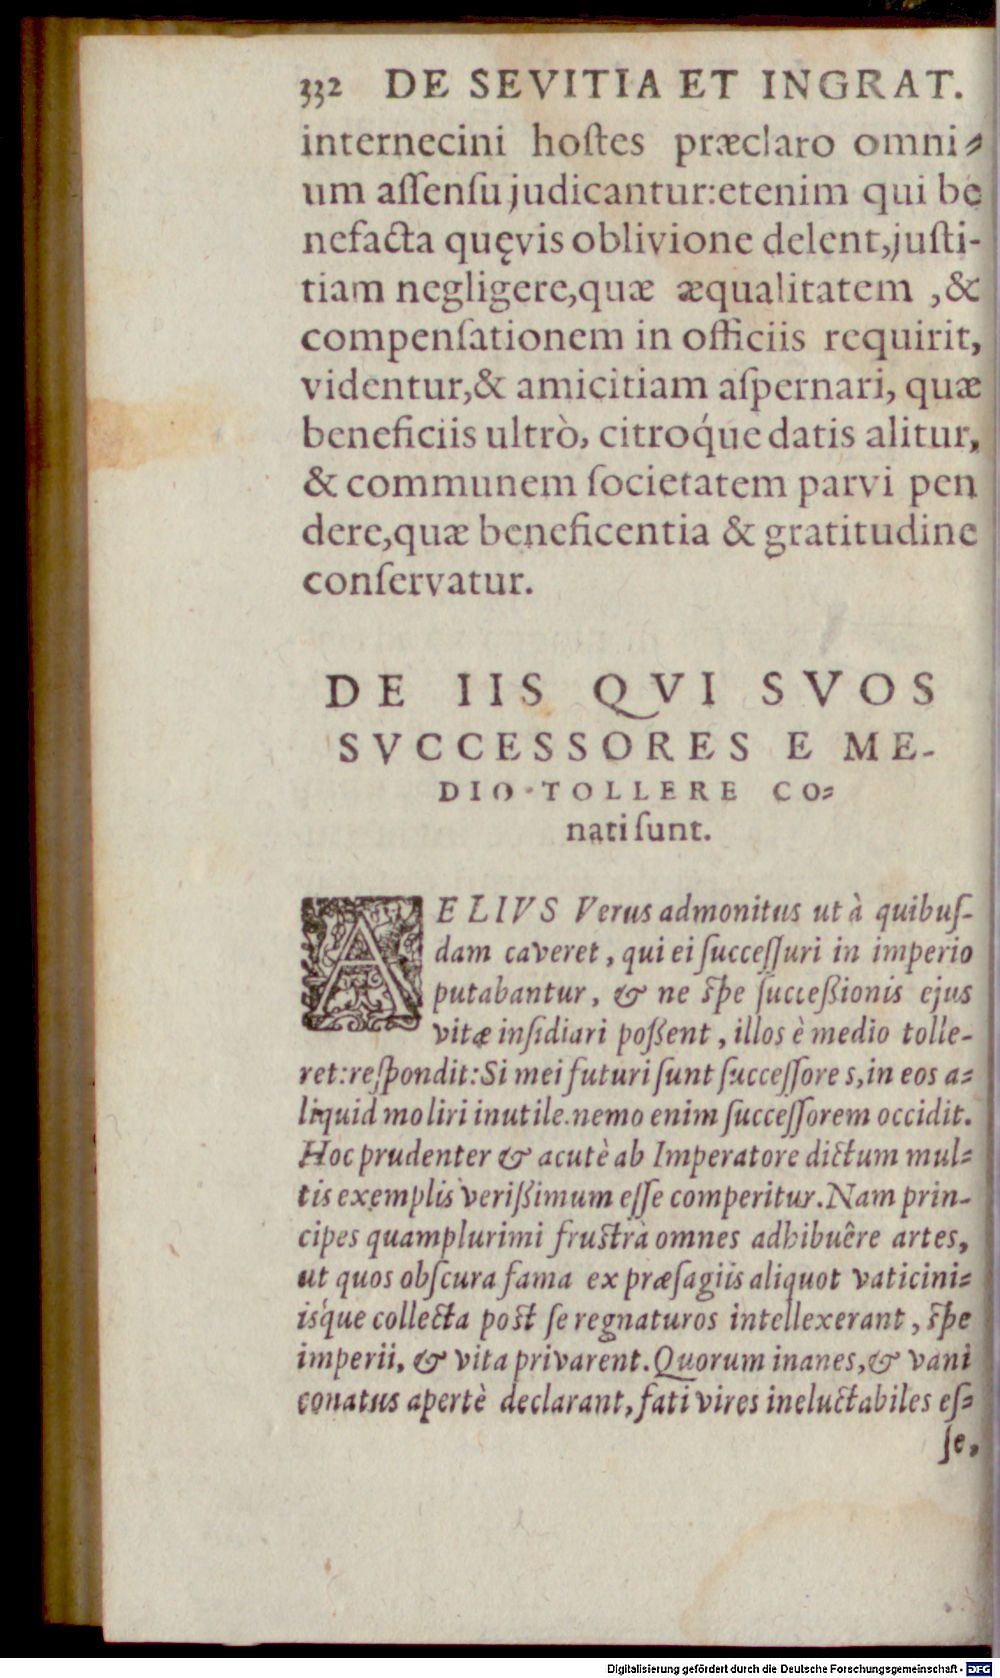 332 DE SEVITIA ET INGRAT.
internecini hostes præclaro omni⸗
um aſſenſu judicantur:etenim qui be
nefacta quęvis oblivione delent,juſti-
tiam negligere,quæ æqualitatem ,&
compenſationem in officiis requirit,
videntur,& amicitiam aſpernari, quæ
beneficiis ultrò, citroq́ue datis alitur,
& communem ſocietatem parvi pen
dere,quæ beneficentia & gratitudine
conſervatur.
DE IIS QVI SVOS
SVCCESSORES E ME-
DIO TOLLERE CO⸗
nati ſunt.
AELIVS Verus admonitus ut à quibuſ-
dam caveret, qui ei ſucceſſuri in imperio
putabantur, & ne ſpe ſucceßionis ejus
vitæ inſidiari poßent, illos è medio tolle-
ret:reſpondit:Si mei futuri ſunt ſucceſſores,in eos a⸗
liquid moliri inutile.nemo enim ſucceſſorem occidit.
Hoc prudenter & acutè ab Imperatore dictum mul⸗
tis exemplis verißimum eſſe comperitur.Nam prin-
cipes quamplurimi fruſtrà omnes adhibuêre artes,
ut quos obſcura fama ex præſagiis aliquot vaticini⸗
isq́ue collecta poſt ſe regnaturos intellexerant, ſpe
imperii, & vita privarent.Quorum inanes,& vani
conatus apertè declarant, fati vires ineluctabiles eſ⸗
ſe,
Digitalisierung gefördert durch die Deutsche Forschungsgemeinschaft - DFG